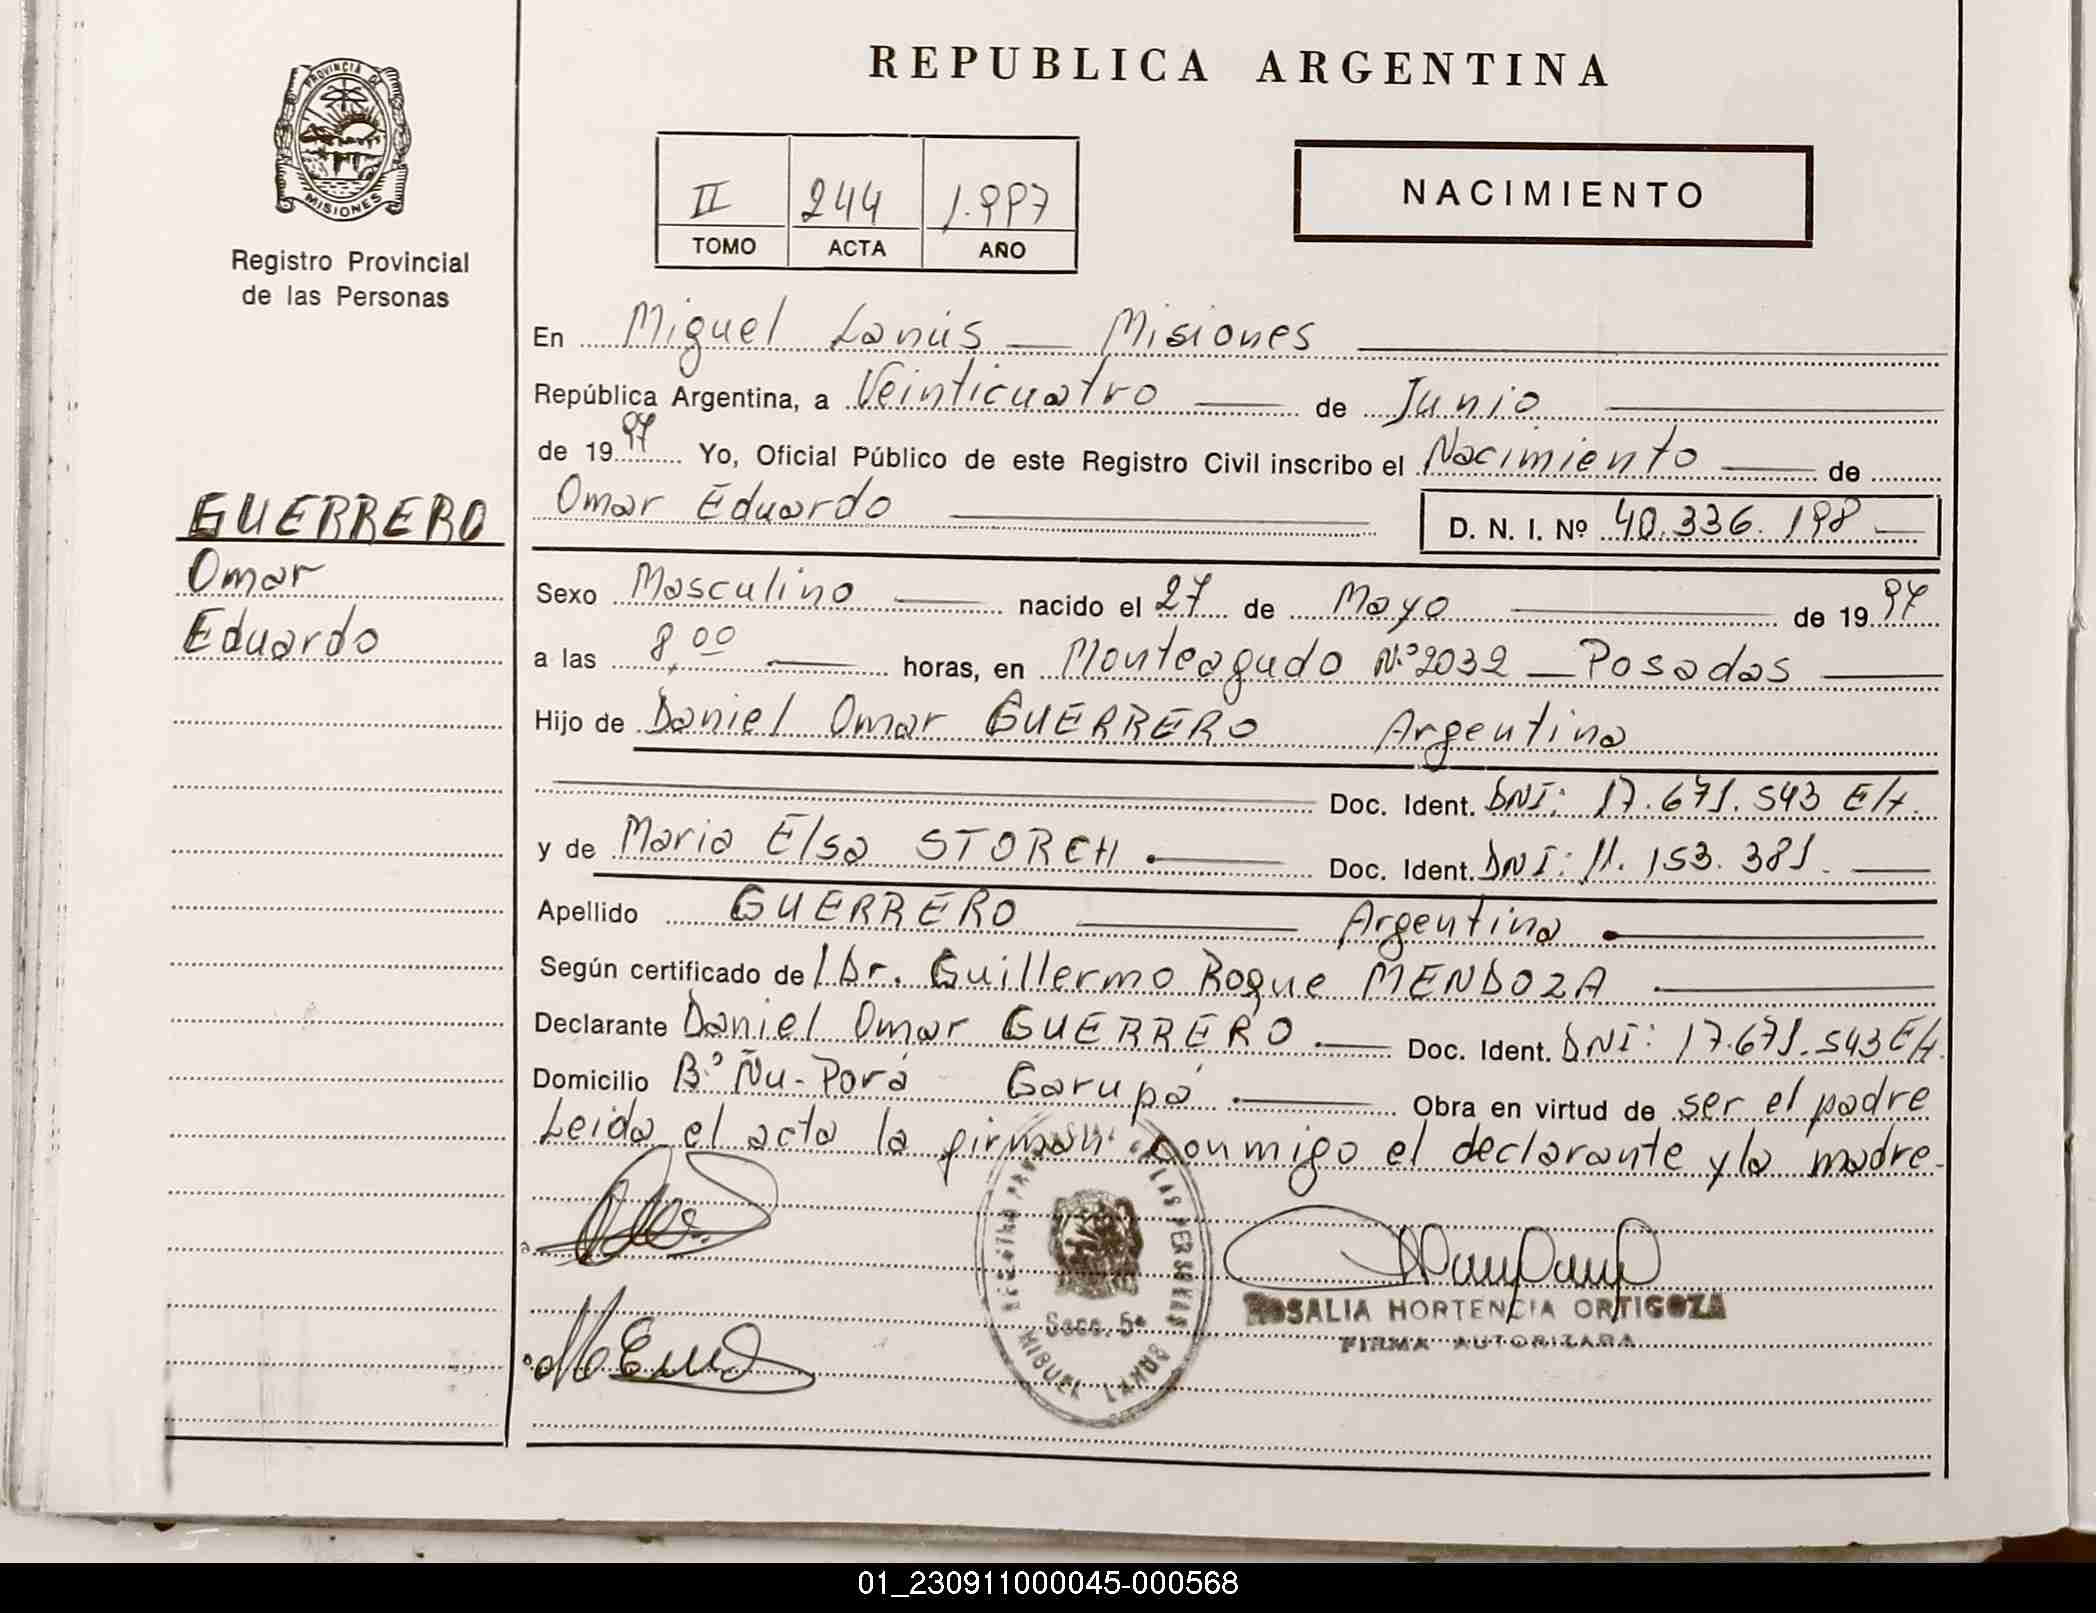 REPUBLICA ARGENTINA
PROVINCIA DE
MISIONES
Registro Provincial
de las Personas
II 244 1.997
TOMO ACTA AÑO
NACIMIENTO
En Miguel Lanús — Misiones
República Argentina, a Veinticuatro de Junio
de 1997 Yo, Oficial Público de este Registro Civil inscribo el Nacimiento de
Omar Eduardo D. N. I. Nº 40.336.198
GUERRERO
Omar
Eduardo
Sexo Masculino nacido el 27 de Mayo de 1997
a las 8,00 horas, en Monteagudo N.º 2032 — Posadas
Hijo de Daniel Omar GUERRERO Argentino
Doc. Ident. DNI: 17.671.543 E/H.
y de Maria Elsa STORCH Doc. Ident. DNI: 11.153.381.
Apellido GUERRERO Argentina
Según certificado del Dr. Guillermo Roque MENDOZA
Declarante Daniel Omar GUERRERO Doc. Ident. DNI: 17.671.543 E/H.
Domicilio Bº Ñu-Porá Garupá Obra en virtud de ser el padre
Leida el acta la firman conmigo el declarante y la madre.
LAS PERSONAS
Secc. 5ª
MIGUEL LANUS
ROSALIA HORTENCIA ORTIGOZA
FIRMA AUTORIZADA
01_230911000045-000568